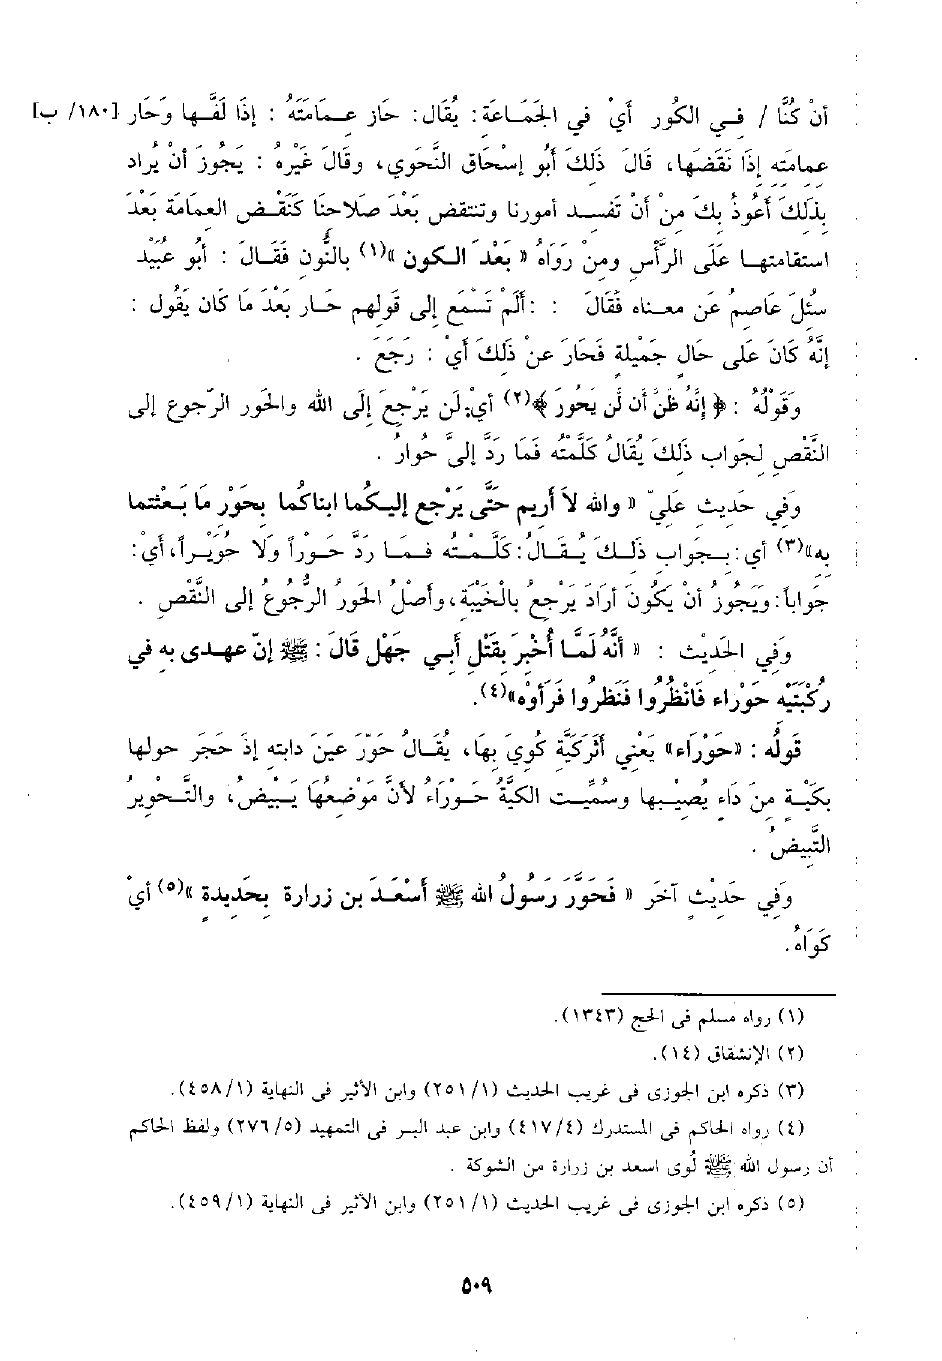 أنْ كُنَّا / فـي الكُور أيْ في الجَمَـاعَة: يُقَال: حَاز عِـمَامَتَهُ : إذَا لَفَّـها وَحَار [١٨٠/ ب]
عِمامَته إذَا نَقَضَها، قَالَ ذَلكَ أَبُو إسْحَاق النَّحَوي، وقالَ غَيْرهُ : يَجُوزَ أنْ يُراد
بِذَلكَ أَعُوذُ بِكَ مِنْ أَنْ تَفسد أمورنا وتنتقض بَعْدَ صَلاحنَا كَنَقْض العمامة بَعْدَ
استقامتها عَلَى الرَّأْس ومِنْ رَوَاهُ « بَعْدَ الكون »(١) بالنُّون فَقَالَ : أَبُو عبَيْد
سُئِلَ عَاصِمُ عَن معناه فَقَالَ : :ألَمْ تَسْمَع إلى قَولهم حَار بَعْدَ مَا كَان يَقُول :
إنَّهُ كَانَ عَلَى حَالٍ جَميلة فَحَارَ عنْ ذَلكَ أيْ : رَجَعَ .
وَقَوْلُهُ : ﴿ إِنَّهُ ظَنَّ أَن لَّن يَحُورَ ﴾(٢) أي: لَن يَرْجِعَ إلَى الله والحَور الرّجوع إلى
النَّقْص لجَواب ذَلكَ يُقَالُ كَلَّمْتُه فَمَا رَدَّ إلىَّ حُوارُ .
وَفي حَديث عَليّ « والله لاَ أريم حَتَّى يَرْجع إليكُما ابناكُما بحَوْر مَا بَعثتما
به»(٣) أي: بجَواب ذَلكَ يُقَالُ: كَلَّمْتُه فمَا رَدَّ حَوراً وَلا حُوَيْراً، أيْ:
جَواباً: وَيَجُوزُ أنْ يَكُونَ أرَادَ يَرْجعُ بالْخَيْبَة، وأصْلُ الحَورُ الرُّجُوعُ إلى النَّقْص .
وَفي الحَديْث : « أنَّهُ لَمَّا أُخْبرَ بقَتْل أبي جَهْل قَالَ : ﷺ إنّ عهدى به في
رُكْبَتَيْه حَوْرَاء فَانْظُرُوا فَنَظَرُوا فَرَأَوْه»(٤).
قَولُه : «حَوْرَاء» يَعْني أثَركَيَّة كُويَ بهَا، يُقَالُ حَوّرَ عَيْنَ دابته إذَ حَجَر حولها
بكَيْة مِنَ دَاءٍ يُصيبها وسُمِّيَت الكَيَّةُ حَوراءُ لأنَّ مَوْضعُهَا يَبْيَضُ، والتَّحْوير
التَّبيضُ .
وَفي حَديْثٍ آخَر « فَحَوَّرَ رَسُولُ الله ﷺ أَسْعَدَ بن زرارة بِحَديدةٍ »(٥) أيْ
كَوَاهُ.
(١) رواه مسلم فى الحج (١٣٤٣).
(٢) الإنشقاق (١٤).
(٣) ذكره ابن الجوزى فى غريب الحديث (٢٥١/١) وابن الأثير فى النهاية (٤٥٨/١).
(٤) رواه الحاكم فى المستدرك (٤١٧/٤) وابن عبد البر فى التمهيد (٢٧٦/٥) ولفظ الحاكم
أن رسول الله ﷺ لُوى اسعد بن زرارة من الشوكة .
(٥) ذكره ابن الجوزى فى غريب الحديث (٢٥١/١) وابن الأثير فى النهاية (٤٥٩/١).
٥٠٩